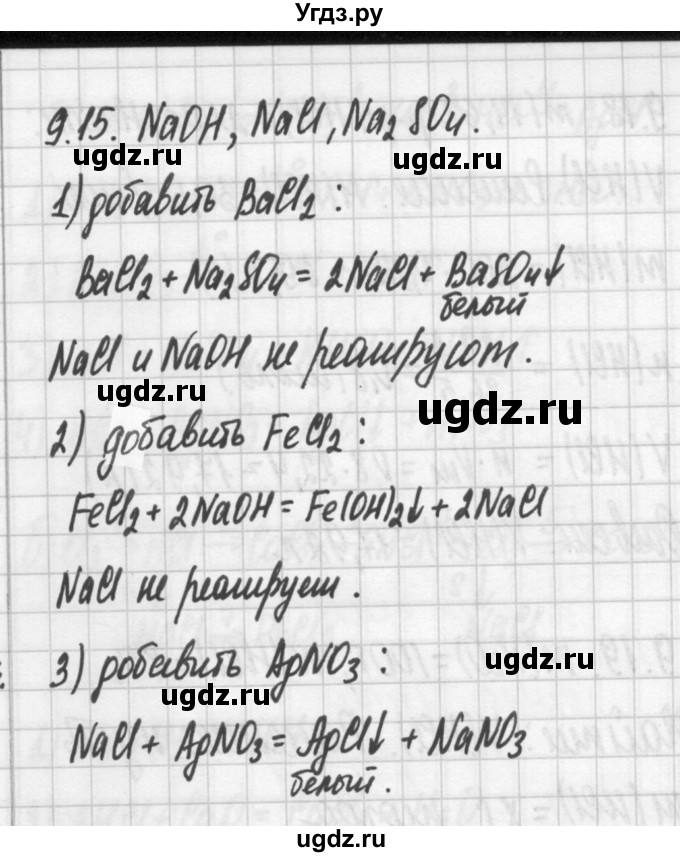 Угдз.ру
9.15. NaOH, NaCl, Na2SO4.
ugdz.ru
ugdz.ru
1) добавить BaCl2:
BaCl2 + Na2SO4 = 2NaCl + BaSO4↓
белый
NaCl и NaOH не реагируют.
ugdz.ru
ugdz.ru
2) добавить FeCl2:
FeCl2 + 2NaOH = Fe(OH)2↓ + 2NaCl
NaCl не реагирует.
3) добавить AgNO3:
ugdz.ru
ugdz.ru
NaCl + AgNO3 = AgCl↓ + NaNO3
белый.
ugdz.ru